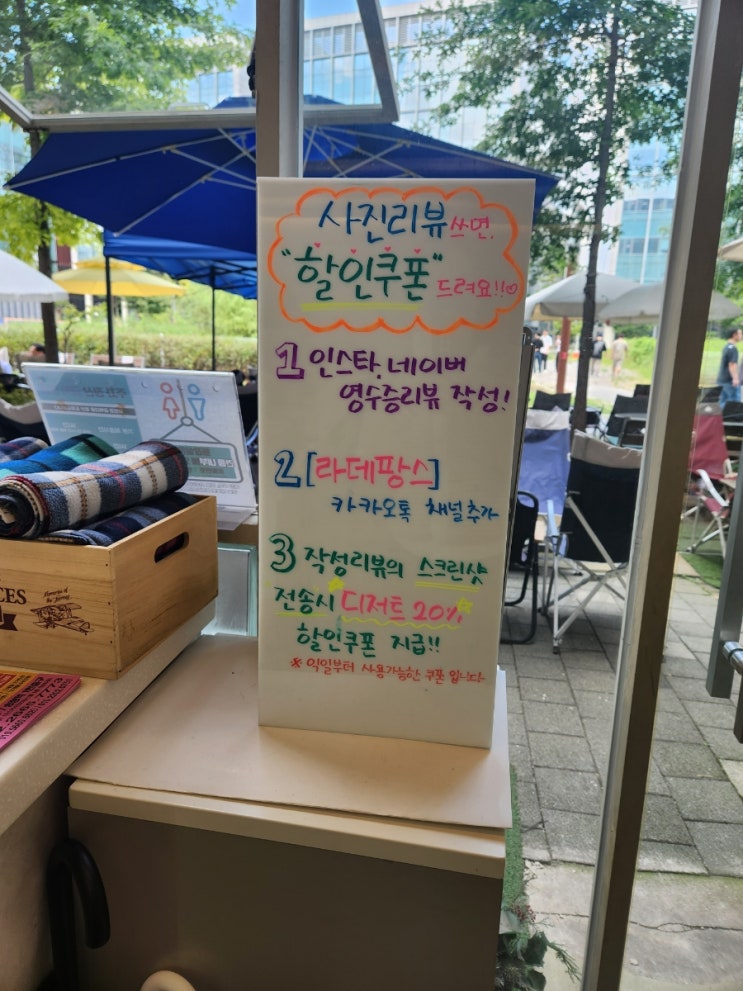 사진리뷰 쓰면,
"할인쿠폰" 드려요!!♡
1 인스타, 네이버
영수증리뷰 작성!
2 [라데팡스]
카카오톡 채널추가
3 작성리뷰의 스크린샷
전송시 디저트 20%
할인쿠폰 지급!!
※ 익일부터 사용가능한 쿠폰 입니다